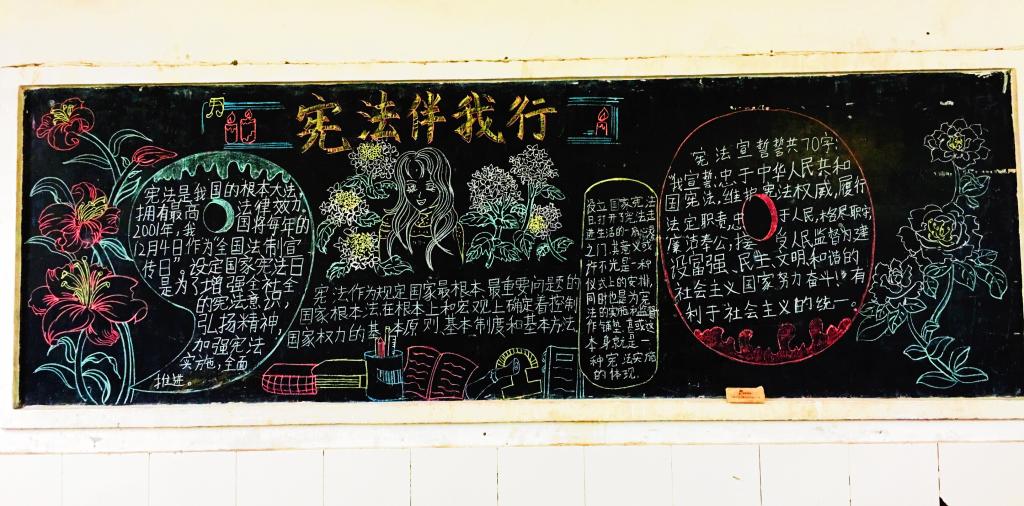 宪法伴我行
宪法是我国的根本大法,
拥有最高 法律效力.
2001年,我 国将每年的
12月4日作为全国法制宣
传日”。设定国家宪法日
是为了增强全社会
的宪法意识,
弘扬精神,
加强宪法
实施,全面
推进。
宪法作为规定国家最根本最重要问题的
国家根本法,在根本上和宏观上确定着控制
国家权力的基本原则、基本制度和基本方法.
设立国家宪法
日打开了宪法走
进生活的一扇
之门,其意义或
许不光是一种
仪式上的安排,
同时也是为宪
法的实施和监督
作铺垫,甚或这
本身就是一
种宪法实施
的体现.
宪法宣誓誓共70字:
“我宣誓:忠于中华人民共和
国宪法,维护宪法权威,履行
法定职责,忠 于人民,恪尽职守,
廉洁奉公,接 受人民监督,为建
设富强、民主、文明、和谐的
社会主义国家努力奋斗!”有
利于社会主义的统一。